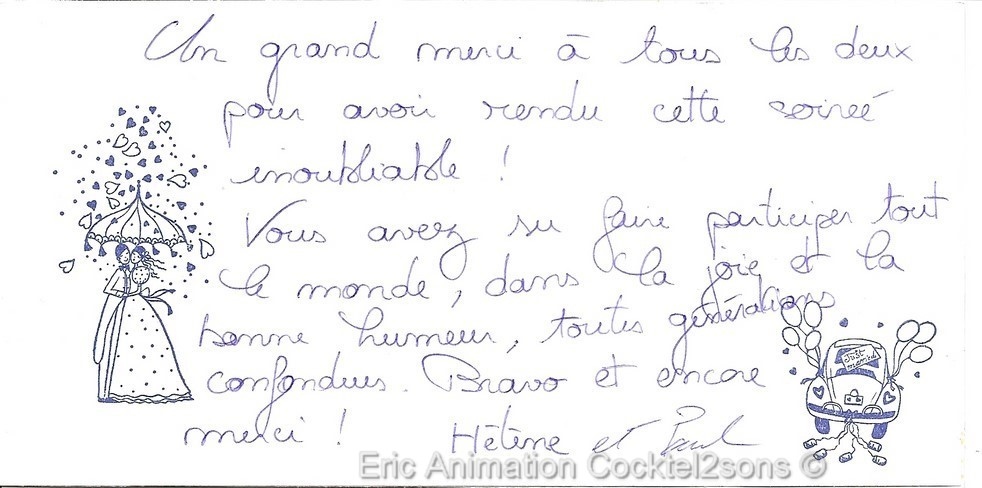 Un grand merci à tous les deux
pour avoir rendu cette soireé
inoubliable !
Vous avez su faire participer tout
le monde, dans la joie et la
bonne humeur, toutes générations
confondues. Bravo et encore
merci ! Hélène et Paul
Just
married
Eric Animation Cocktel2sons ©